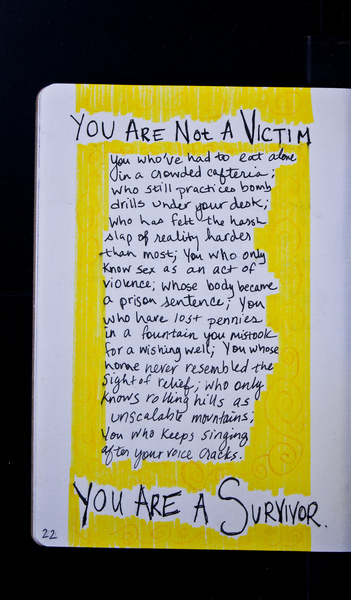 YOU ARE NOT A VICTIM
You who've had to eat alone
in a crowded cafteria;
who still practices bomb
drills under your desk;
who has felt the harsh
slap of reality harder
than most; You who only
know sex as an act of
violence; whose body became
a prison sentence; You
who have lost pennies
in a fountain you mistook
for a wishing well; You whose
home never resembled the
sight of relief; who only
knows rolling hills as
unscalable mountains;
You who keeps singing
after your voice cracks.
YOU ARE A SURVIVOR.
22